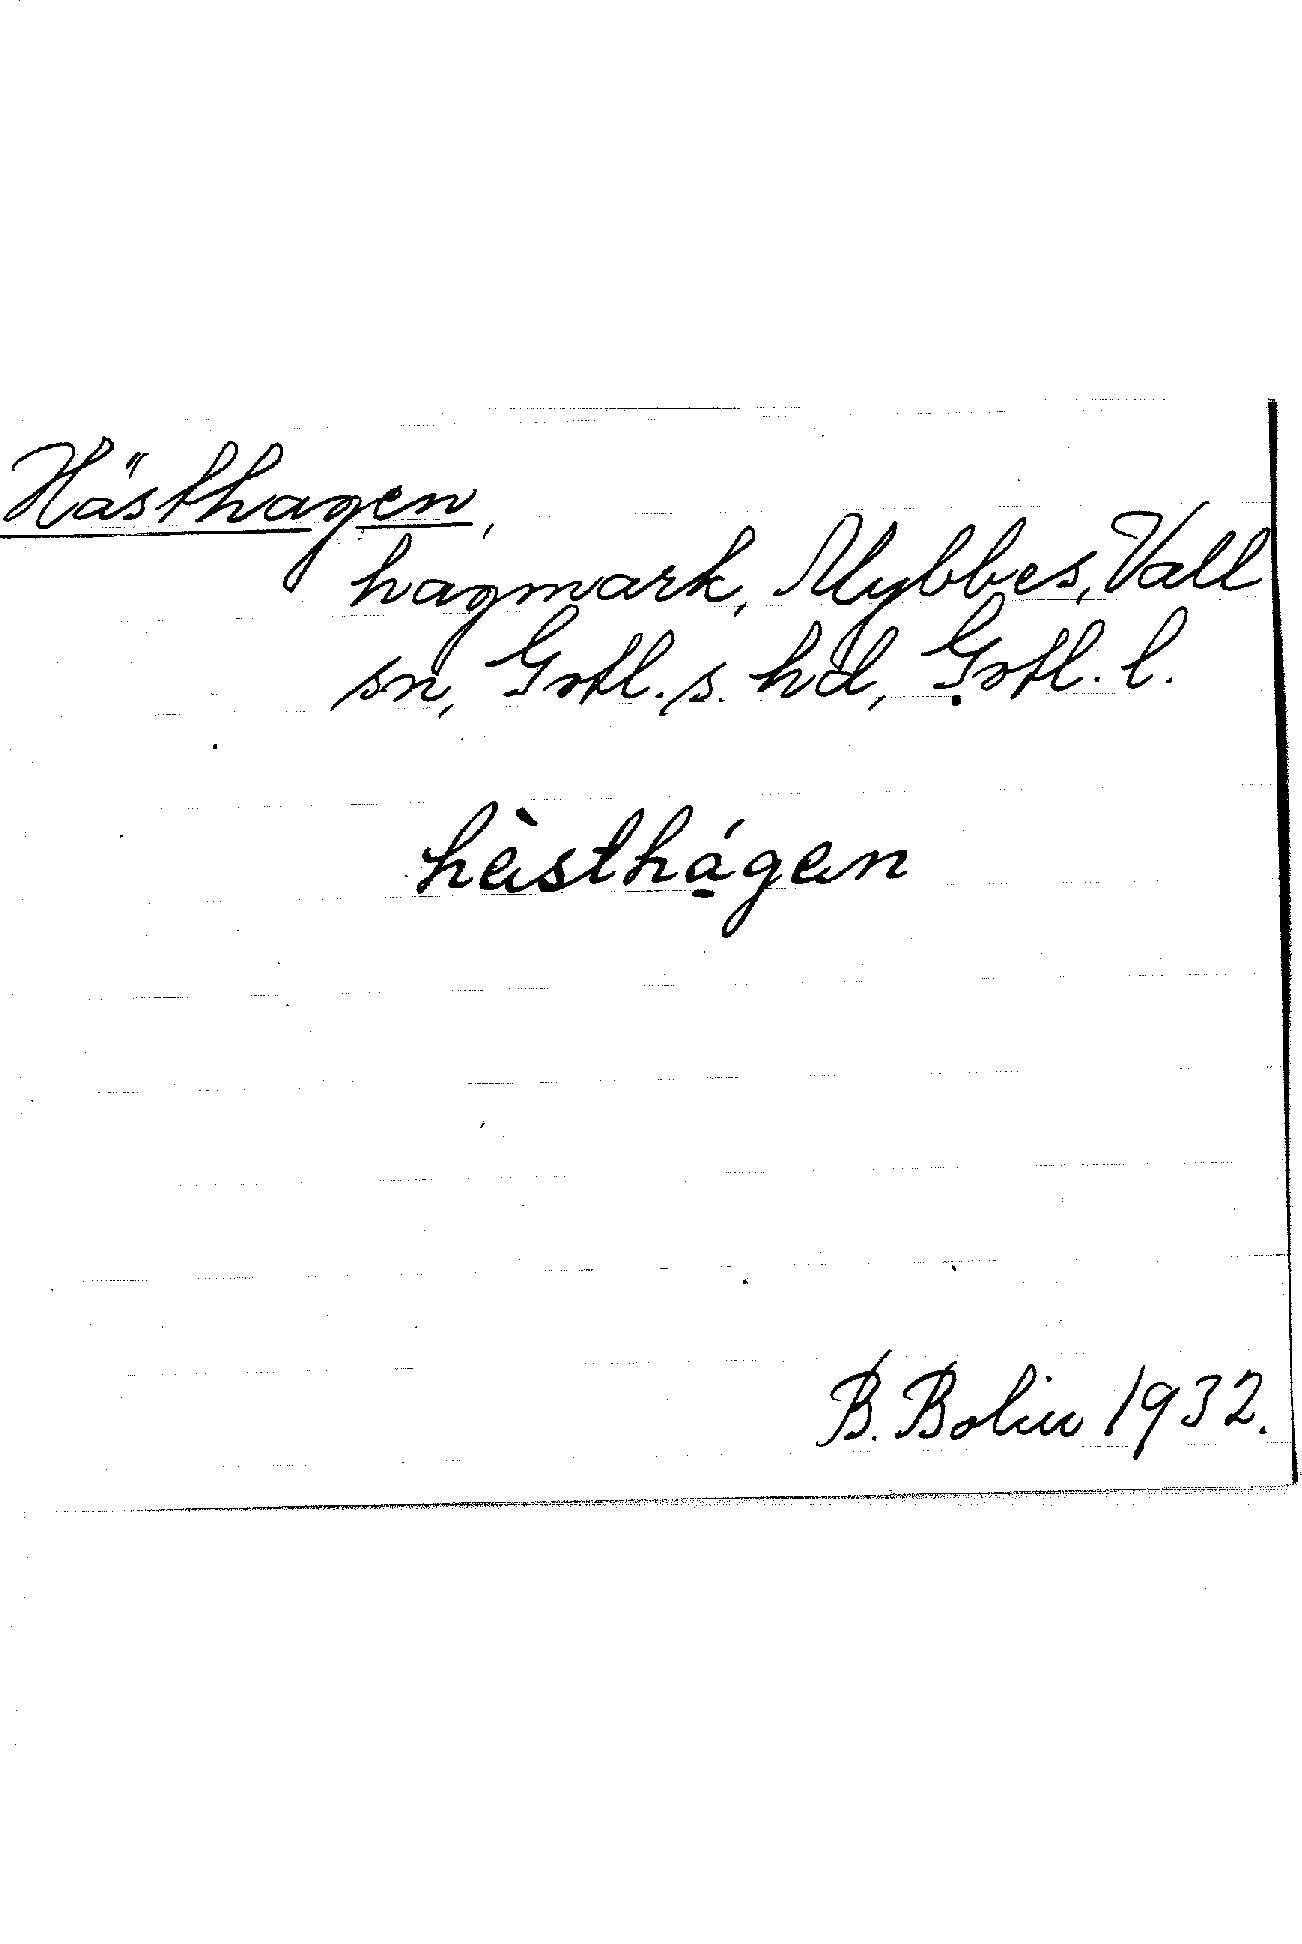 Hästhagen,
hagmark, Mybbes, Vall
sn, Gotl. s. hd, Gotl. l.
hèsthá̱gen
B. Bolin 1932.